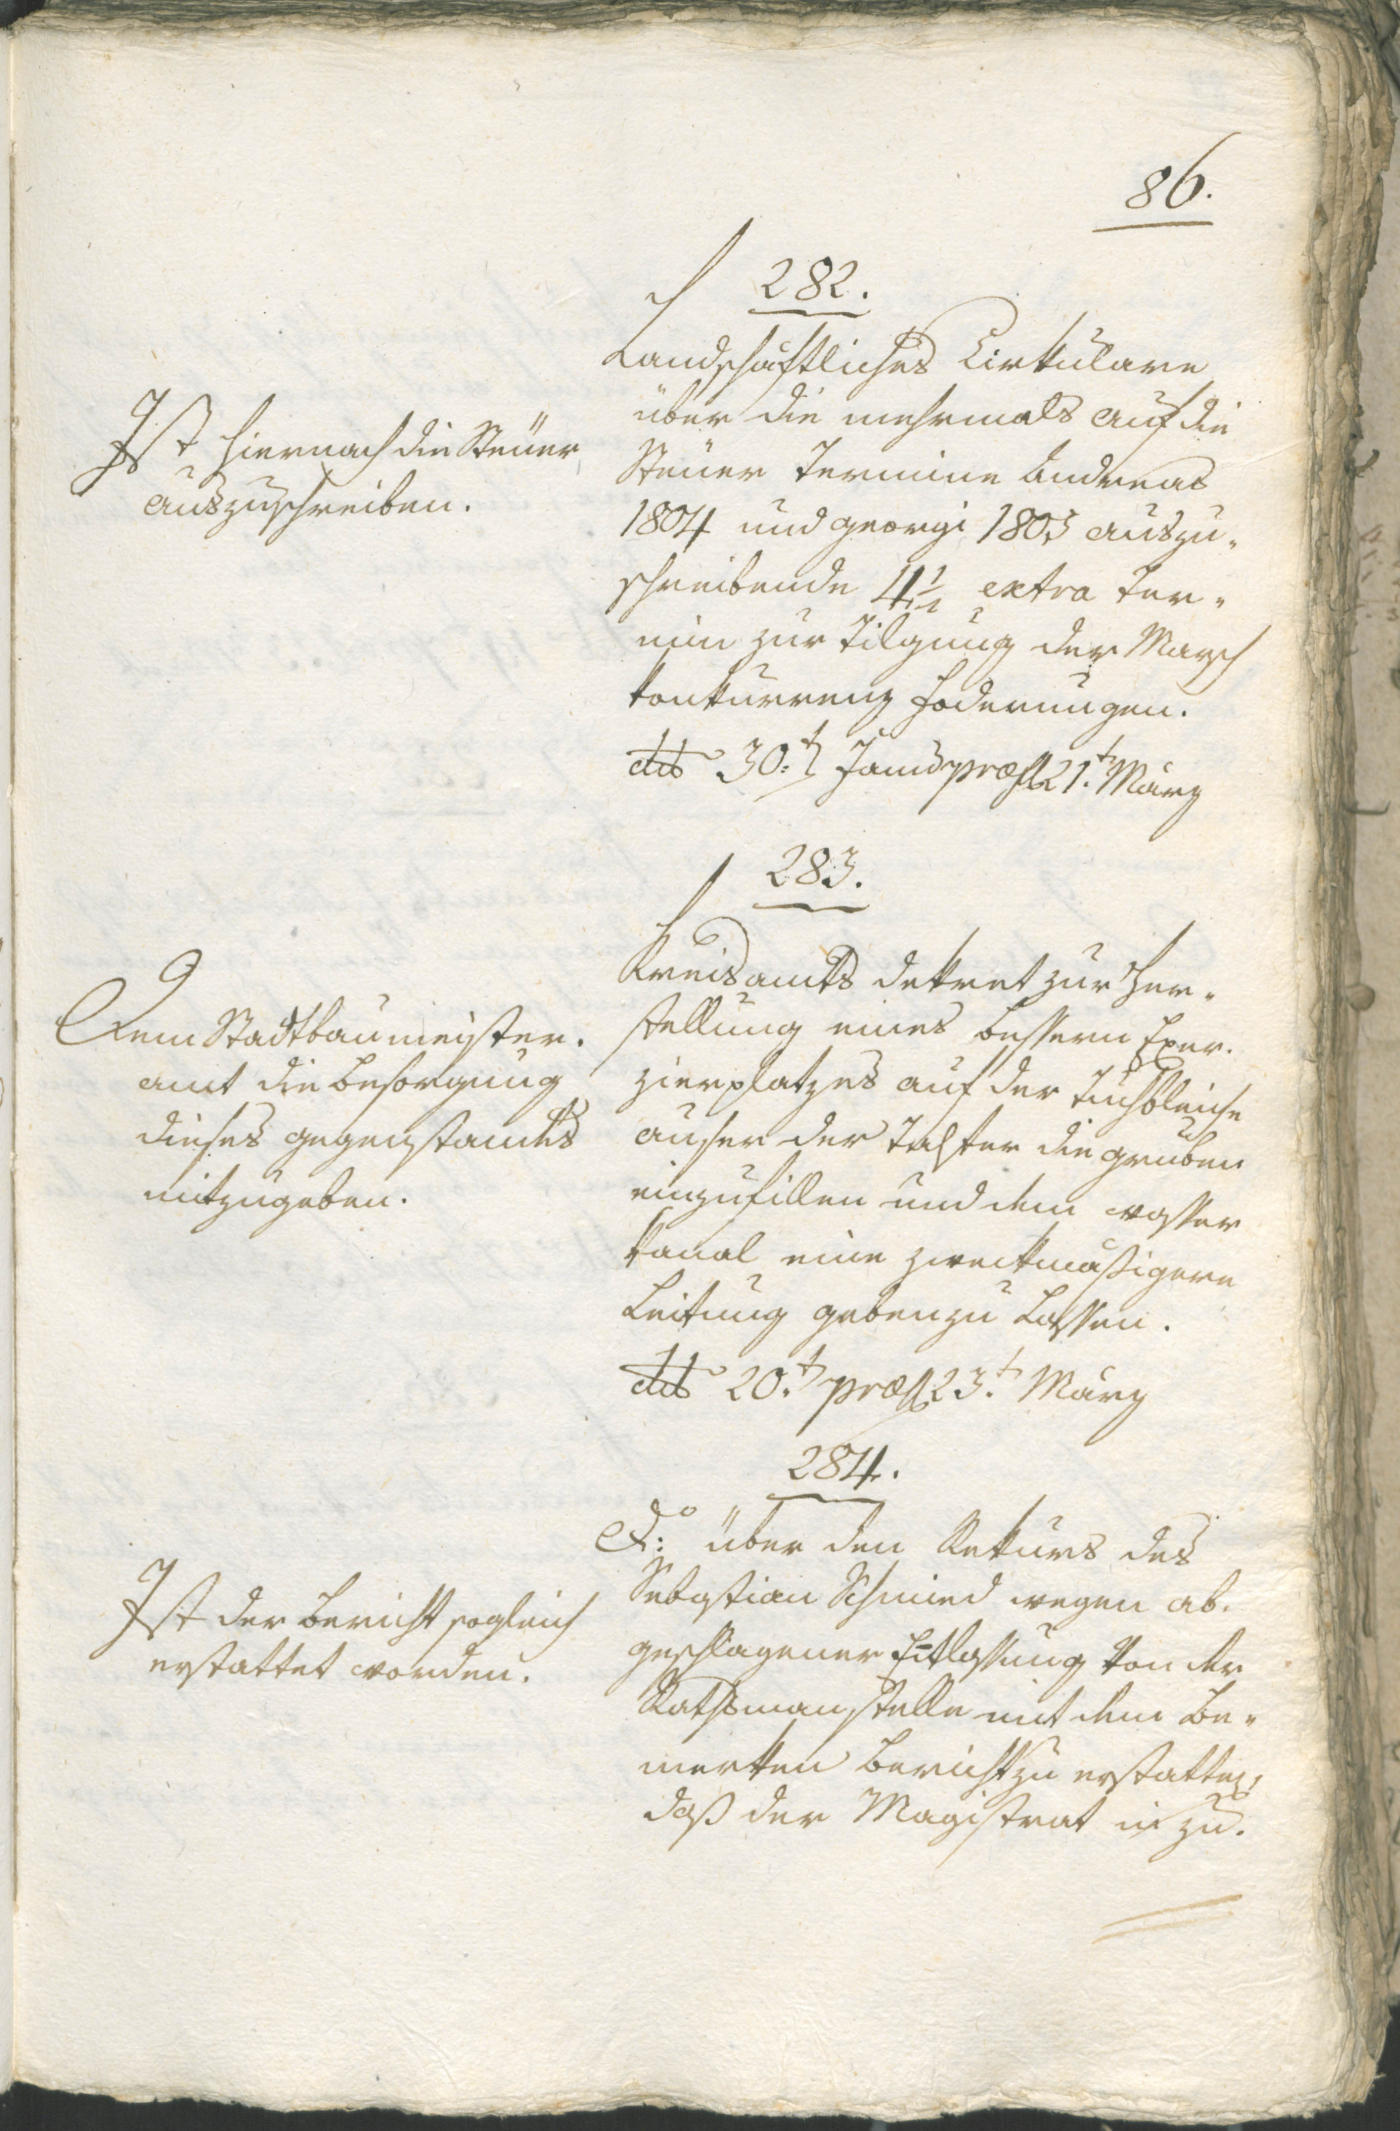 86.
282.
Landschäftliches Cirkulare
über die mehrmals auf die
Steuer Termine Andreas
1804 und georgi 1805 auszu-
schreibende 4 1/2 extra Ter-
min zur Tilgung der Marsch
konkurrenz Foderungen.
dto 30.t Jänner præs 21.t März
Ist hiernach die Steuer
auszuschreiben.
283.
Kreisamts dekret zur Her-
stellung eines bessern Exer-
zierplatzes auf der Tuchbleiche
auser der Talfer die gruben
einzufillen und dem wasser
kanal eine zweckmäßigere
Leitung geben zu lassen.
dto 20.t præs 23.t März
Dem Stadtbaumeister-
amt die Besorgung
dieses gegenstandes
mitzugeben.
284.
do: über den Rekurs des
Sebastian Schmied wegen ab-
geschlagener Entlassung von der
Rathsmanstelle mit dem Be-
merken Bericht zu erstatten,
daß der Magistrat in zu-
Ist der Bericht sogleich
erstattet worden.